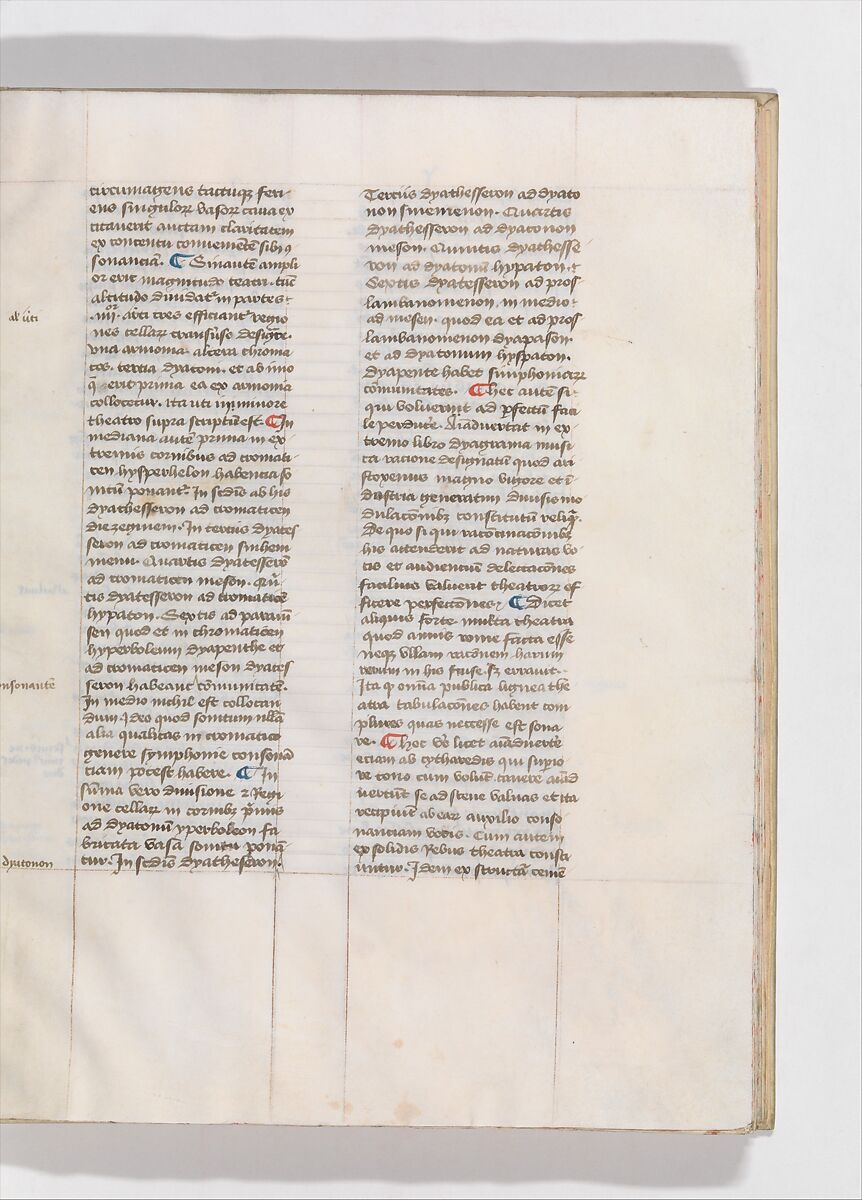 circumagens tactuq; feri-
ens singulor vasor cava ex
citaverit auctam claritatem
ex concentu convenietē sibi 9
sonanciā. Sin autē ampli
or erit magnitudo teatri. tūc
altitudo dividat in partes
.iiij. uti tres efficiant regio
nes cellar transūso designate.
vna armonia. altera chroma
tos. tercia dyatoni. et ab imo
q erit prima ea ex armonia
collocetur. ita uti in minore
theatro supra scriptū est. In
mediana autē prima in ex
tremis cornibus ad cromati-
cen hysperbelon habencia so
nitū ponant. In scdis ab his
dyathesseron ad cromaticen
diezegmen. In terciis dyates
seron ad cromaticen sinhem
menu. Quartis dyatesserō
ad cromaticen meson. Qui
tis dyatesseron ad cromaticē
hypaton. Sextis ad parame
sen quod et in chromaticen
hyperboleum dyapenthe et
ad cromaticen meson dyates
seron habeant cōmunitatē.
In medio nichil est collocan
dum. Ideo quod sonitum nulla
alia qualitas in cromatico
genere symphonie consonā
ciam potest habere. In
sūma vero divisione et regi
one cellar in cornibz primis
ad dyatonū yperboleon fa
bricata vasa sonitu ponā
tur. In scdis dyatheseron.
Terciis dyathesseron ad dyato
non sinemenon. Quartis
dyathesseron ad dyatonon
meson. Quintis dyathesse
ron ad dyatonū hypaton.
Sextis dyatesseron ad pros
lambanomenon. in medio
ad mesen. quod ea et ad pros
lambanomenon dyapason.
et ad dyatonum hyspaton.
dyapente habet simphoniarr
cōmunitates. Hec autē si
qui voluerint ad pfectū faci
le perduce. Aīadvertat in ex
tremo libro dyagrama musi
ca racione designatū quod ari
stoxenus magno vigore et ī
dustria generatim divisis mo
dulacōnibz constitutū reliq.
De quo si qui raciocinacōnibz
his attenderit ad naturas vo
cis et audienciū delectacōnes
facilius valuerit theatror ef
ficere perfectiones. Dicet
aliquis forte multa theatra
quod annis rome facta esse
neq; vllam racōnem harum
rerum in his fuisse. sz erravit.
Ita q omīa publica lignea the
atra tabulacōnes habent com
plures quas necesse est sona
re. Hec v̄o licet aīadverte
eciam ab cytharedis qui supio
re tono cum volūt canere aūd
vertunt se ad scene valvas et ita
recipiunt ab ear auxilio conso
nanciam vocis. Cum autem
ex solidis rebus theatra consti
untur. Idem ex structa ceme
al uti
onsonantē
dyatonon